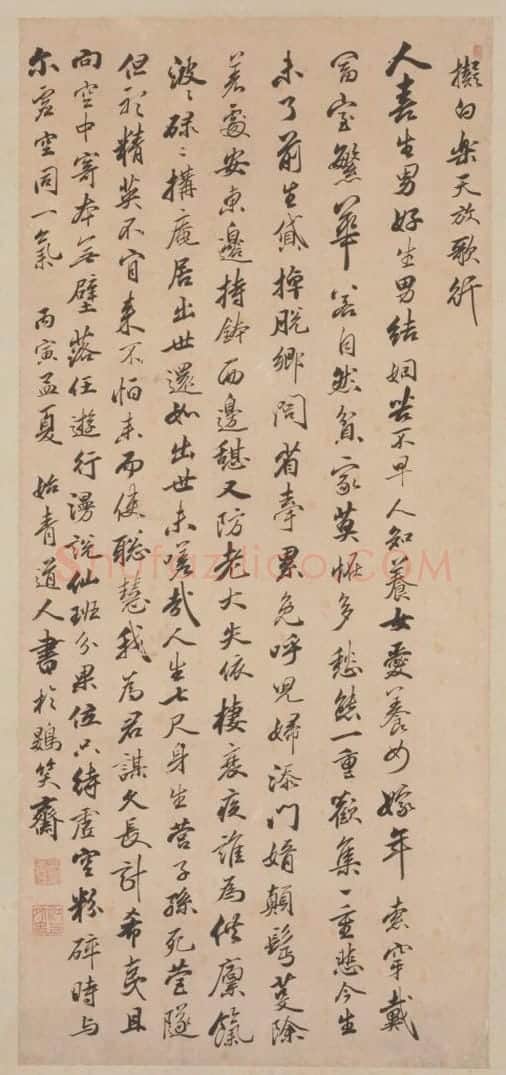 擬白樂天放歌行
人喜生男好生男結姻苦不早人知養女愛養女嫁年索穿戴
富室繁華若自然貧家莫恠多愁態一重歡集一重悲今生
未了前生貸掉脫鄉問省牽累免呼兒婦添門婿顛髩蔓除
著處安東邊持鉢西邊憇又防老大失依棲衰疾誰為供廩餼
波〻碌〻搆庵居出世還如出世未嗟哉人生七尺身生營子孫死營隧
但於精英不肯來不怕來而使聡慧我為君謀久長計希夷且
向空中寄本無壁落任遊行漫說仙班分果位只待虛空粉碎時与
尔虛空同一氣 丙寅孟夏 始青道人書於鷃笑齋
Shufaziliao.COM